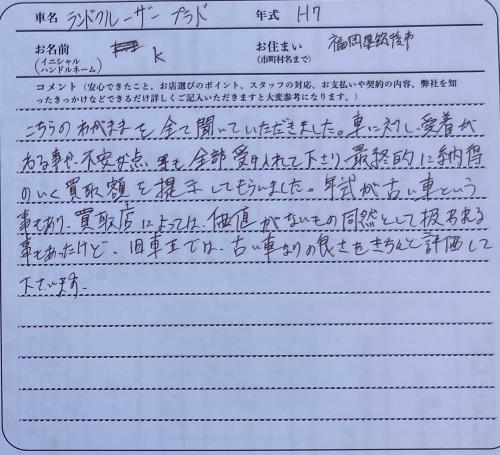 車名 ランドクルーザー プラド 年式 H7
お名前 K お住まい 福岡県筑後市
(イニシャル ハンドルネーム) (市町村名まで)
コメント(安心できたこと、お店選びのポイント、スタッフの対応、お支払いや契約の内容、弊社を知
ったきっかけなどできるだけ詳しくご記入いただきますと大変参考になります。)
こちらのわがままを全て聞いていただきました。車に対し、愛着が
ある事や、不安な点 等も全部受け入れて下さり、最終的に納得
のいく買取額を提示してもらいました。年式が古い車という
事もあり、買取店によっては、価値がないもの同然として扱われる
事もあったけど、旧車王では、古い車なりの良さをきちんと評価して
下さいます。